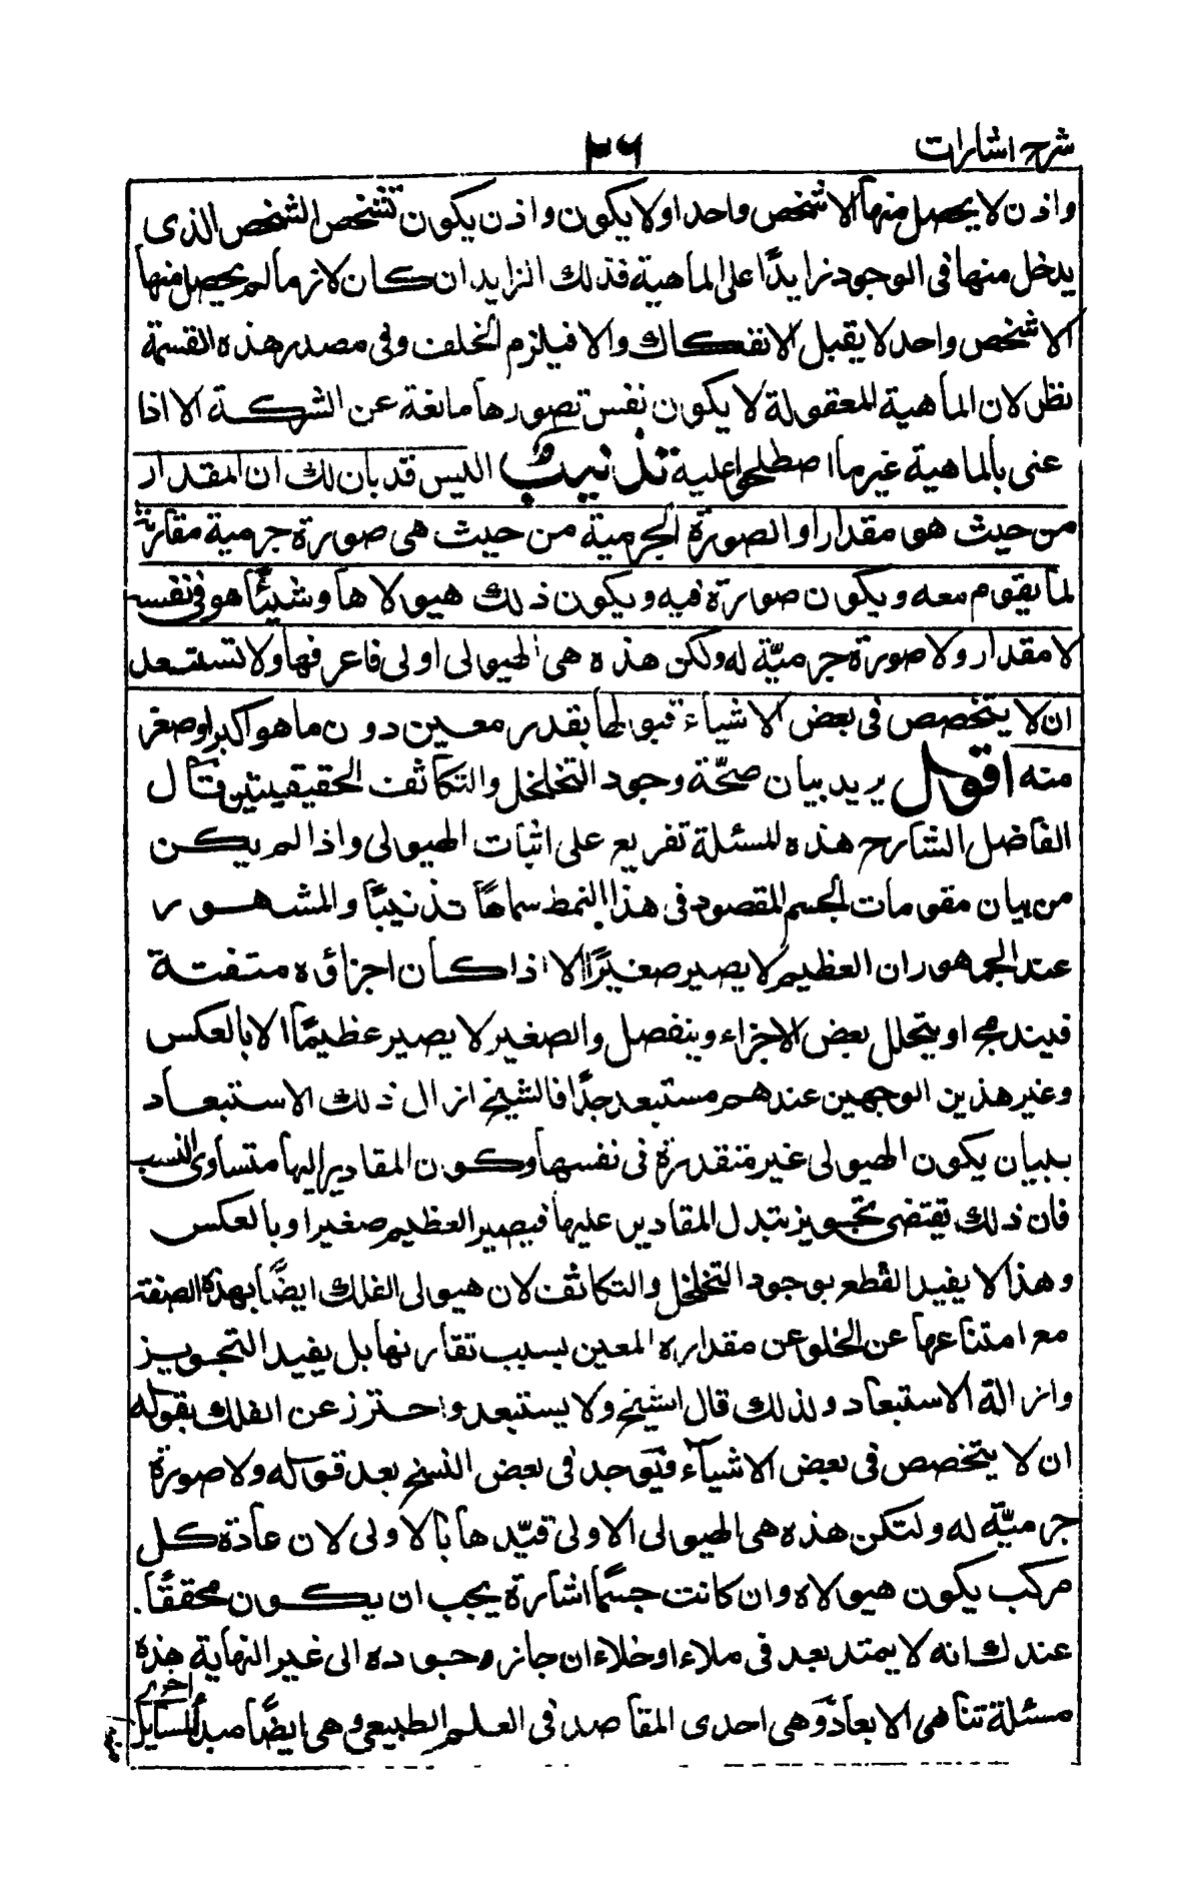 شرح اشارات
٣٦
واذن لا يحصل منها الا شخص واحد او لا يكون واذن يكون تشخص الشخص الذى
يدخل منها فى الوجود زايدًا على الماهية فذلك الزايد ان كان لازما لم يحصل منها
الا شخص واحد لا يقبل الانفكاك والا فيلزم الخلف وفى مصدر هذه القسمة
نظر لان الماهية المعقولة لا يكون نفس تصورها مانعة عن الشركة الا اذا
عنى بالماهية غير ما اصطلحوا عليه تذنيب اليس قد بان لك ان المقدار
من حيث هو مقدار او الصورة الجرمية من حيث هى صورة جرمية مقارنة
لما يقوم معه ويكون صورة فيه ويكون ذلك هيولاها وشيئًا هو فى نفسه
لا مقدار ولا صورة جرميّة له ولكن هذه هى الهيولى اولى فاعرفها ولا تستبعد
ان لا يتخصص فى بعض الاشياء قبولها بقدر معين دون ما هو اكبر او صغر
منه اقول يريد بيان صحّة وجود التخلخل والتكاثف الحقيقيتين قال
الفاضل الشارح هذه المسئلة تفريع على اثبات الهيولى واذا لم يكن
من بيان مقومات الجسم المقصود فى هذا النمط سماها تذنيبًا والمشهور
عند الجمهور ان العظيم لا يصير صغيرًا الا اذا كان اجزاؤه متفتة
فيندمج او يتحلل بعض الاجزاء وينفصل والصغير لا يصير عظيمًا الا بالعكس
وغير هذين الوجهين عندهم مستبعد جدًا فالشيخ ازال ذلك الاستبعاد
ببيان يكون الهيولى غير متقدرة فى نفسها وكون المقادير اليها متساوى النسب
فان ذلك يقتضى تجويز تبدل المقادير عليها فيصير العظيم صغيرا وبالعكس
وهذا لا يفيد القطع بوجود التخلخل والتكاثف لان هيولى الفلك ايضًا بهذه الصفة
مع امتناعها عن الخلو عن مقداره المعين بسبب تقارنها بل يفيد التجويز
وازالة الاستبعاد ولذلك قال الشيخ ولا يستبعد واحترز عن الفلك بقوله
ان لا يتخصص فى بعض الاشياء ويوجد فى بعض النسخ بعد قوله ولا صورة
جرميّة له ولتكن هذه هى الهيولى الاولى قيّدها بالاولى لان عادة كل
مركب يكون هيولاه وان كانت جسمًا اشارة يجب ان يكون محققًا.
عندك انه لا يمتد بعد فى ملاء او خلاء ان جاز وجوده الى غير النهاية هذه
مسئلة تناهى الابعاد وهى احدى المقاصد فى العلم الطبيعى وهى ايضًا مبدأ لمسايل
اخرى